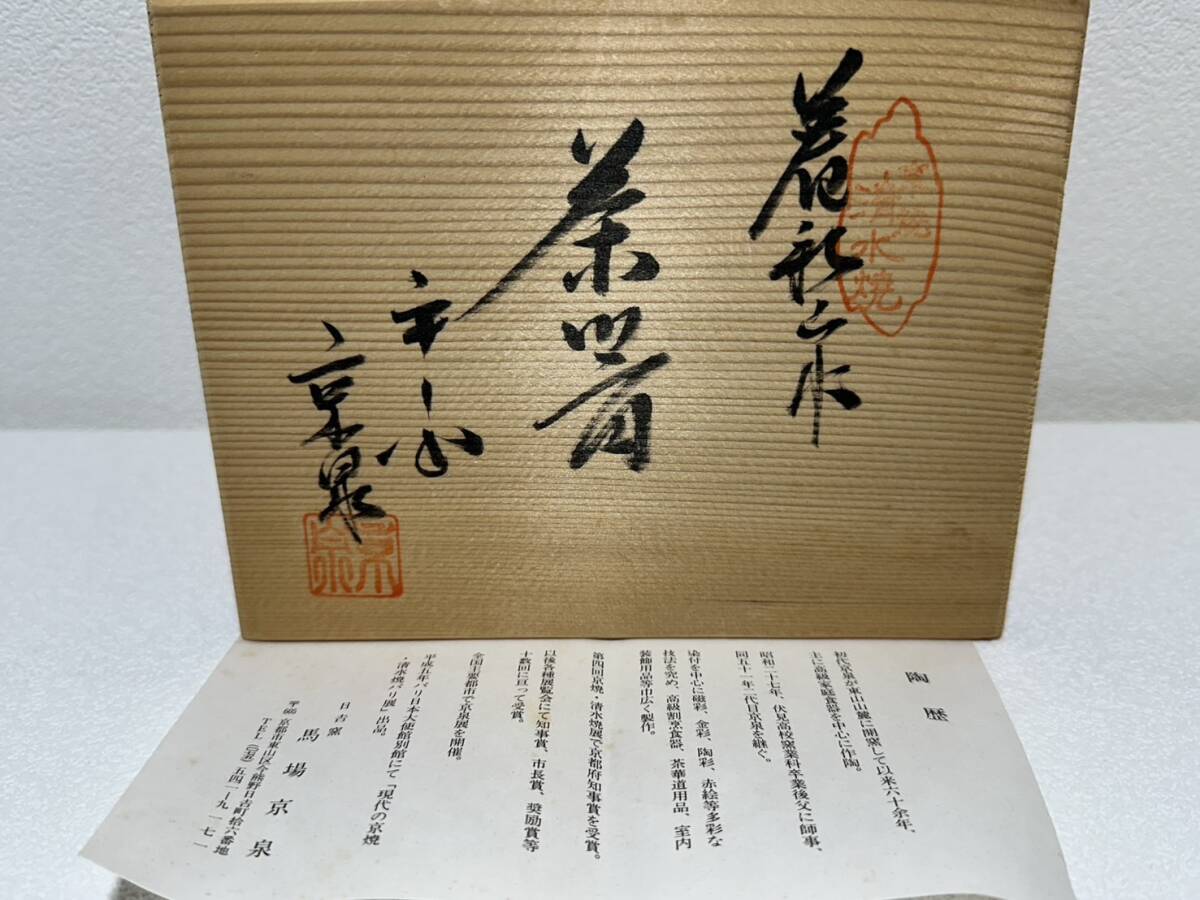 山水
京焼
清水焼
茶
平安
京泉
陶歴
初代京泉が東山山麓に開窯して以来六十余年、
主に高級家庭食器を中心に作陶。
昭和二十七年、伏見高校窯業科卒業後父に師事、
同五十一年二代目京泉を継ぐ。
染付を中心に磁彩、金彩、陶彩、赤絵等多彩な
技法を究め、高級割烹食器、茶華道用品、室内
装飾用品等巾広く製作。
第四回京焼・清水焼展で京都府知事賞を受賞。
以後各種展覧会にて知事賞、市長賞、奨励賞等
十数回に亘って受賞。
全国主要都市で京泉展を開催。
平成五年パリ日本大使館別館にて「現代の京焼
・清水焼パリ展」出品。
日吉窯
馬場京泉
〒605 京都市東山区今熊野日吉町拾六番地
TEL(〇七五)五四一ー九一七一